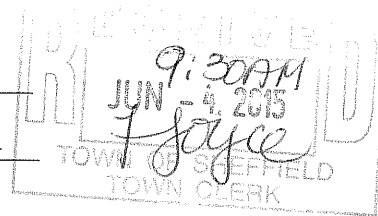 RECEIVED
9:30AM
JUN - 4 2015
F Joyce
TOWN OF SHEFFIELD
TOWN CLERK